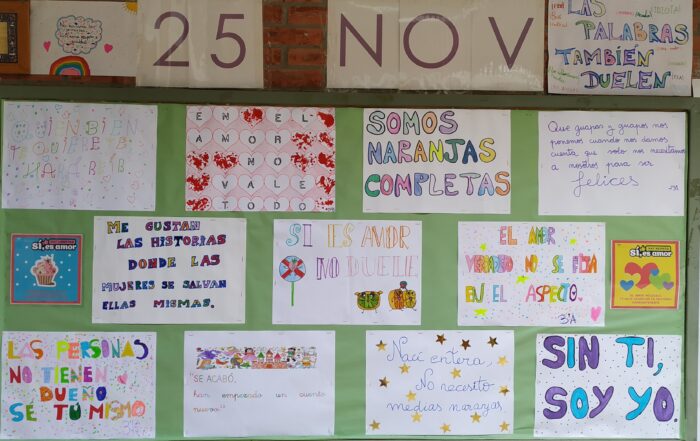 25 NOV
LAS
PALABRAS
TAMBIÉN
DUELEN
QUIEN BIEN
TE QUIERE TE
HARÁ REÍR
EN EL
AMOR
NO
VALE
TODO
SOMOS
NARANJAS
COMPLETAS
Que guapas y guapos nos
ponemos cuando nos damos
cuenta que solo nos necesitamos
a nosotros para ser
felices
Sí, es amor
ME GUSTAN
LAS HISTORIAS
DONDE LAS
MUJERES SE SALVAN
ELLAS MISMAS.
SI ES AMOR
NO DUELE
EL AMOR
VERDADERO NO SE FIJA
EN EL ASPECTO.
3ºA
Sí, es amor
LAS PERSONAS
NO TIENEN
DUEÑO
SÉ TÚ MISMO
"SE ACABÓ,
han empezado un cuento
nuevo"
Nací entera,
No necesito
medias naranjas
SIN TI,
SOY YO.